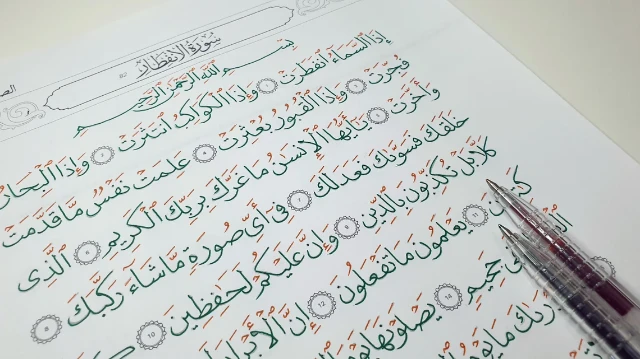 سُورَةُ الانْفِطَارِ
بِسْمِ ٱللَّهِ ٱلرَّحْمَٰنِ ٱلرَّحِيمِ
إِذَا ٱلسَّمَآءُ ٱنفَطَرَتْ ١ وَإِذَا ٱلْكَوَاكِبُ ٱنتَثَرَتْ ٢ وَإِذَا ٱلْبِحَارُ
فُجِّرَتْ ٣ وَإِذَا ٱلْقُبُورُ بُعْثِرَتْ ٤ عَلِمَتْ نَفْسٌ مَّا قَدَّمَتْ
وَأَخَّرَتْ ٥ يَٰٓأَيُّهَا ٱلْإِنسَٰنُ مَا غَرَّكَ بِرَبِّكَ ٱلْكَرِيمِ ٦ ٱلَّذِى
خَلَقَكَ فَسَوَّىٰكَ فَعَدَلَكَ ٧ فِىٓ أَىِّ صُورَةٍ مَّا شَآءَ رَكَّبَكَ ٨
كَلَّا بَلْ تُكَذِّبُونَ بِٱلدِّينِ ٩ وَإِنَّ عَلَيْكُمْ لَحَٰفِظِينَ ١٠
يَعْلَمُونَ مَا تَفْعَلُونَ ١٢ إِنَّ ٱلْأَبْرَارَ
جَحِيمٍ ١٤ يَصْلَوْنَهَا